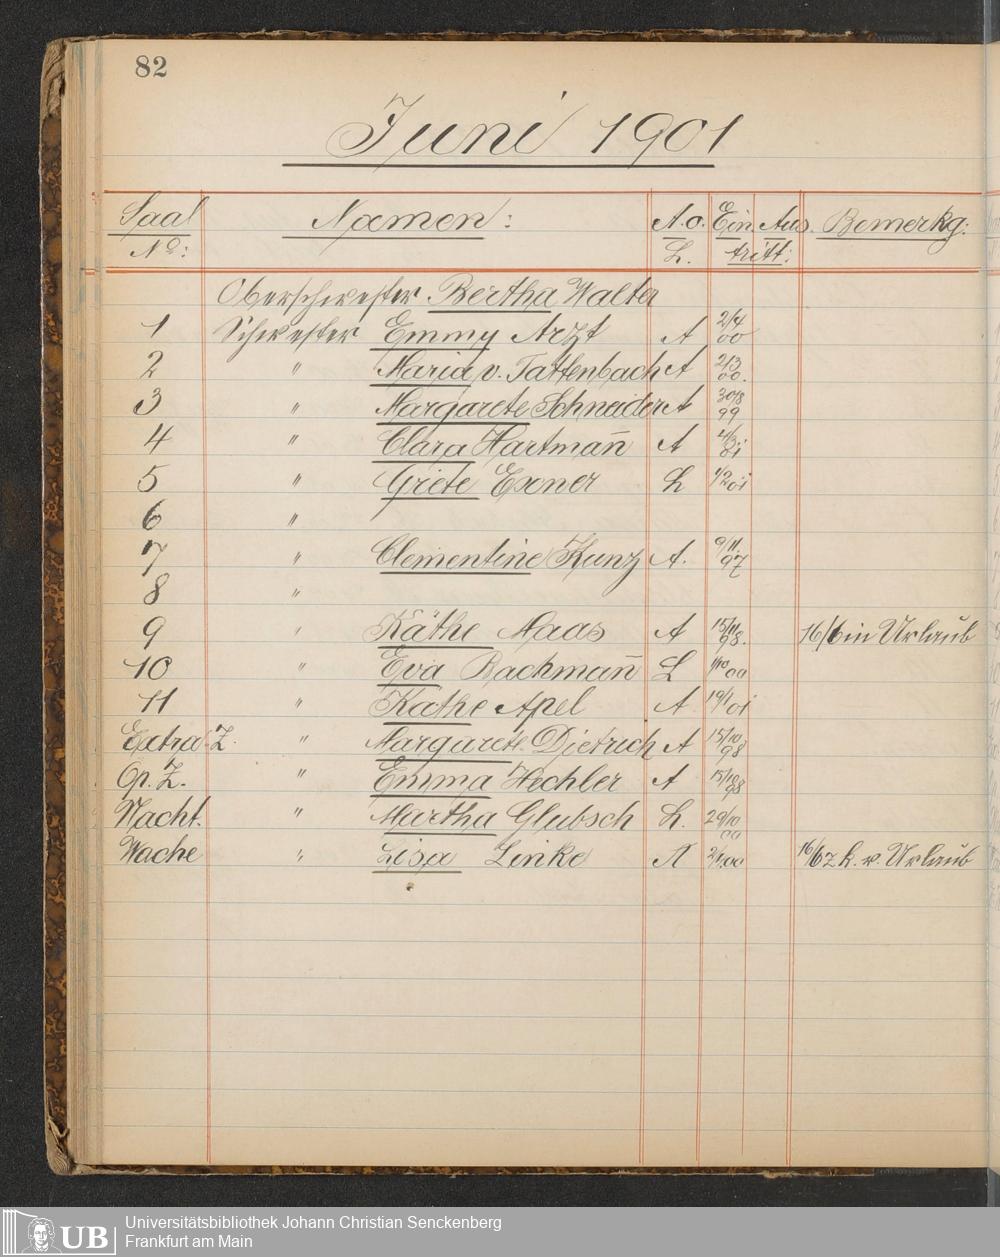 82
Juni 1901
Saal Namen: A. o. Ein Aus. Bemerkg:
No: L. tritt:
Oberschwester Bertha Walter
1 Schwester Emmy Arzt A 2/4 00
2 " Maria v. Tattenbach A 2/3 00.
3 " Margarete Schneider A 30/8 99
4 " Clara Hartman̄ A 01
5 " Grete Exner L 1/2 01
6 "
7 " Clementine Kunz A. 9/11. 97
8 "
9 " Käthe Maas A 15/11 98. 16/6 in Urlaub
10 " Eva Bachman̄ L 1/10 00
11 " Käthe Apel A 19/1 01
Extra Z. " Margarete Dietrich A 15/10 98
Op. Z. " Emma Hechler A 15/10 98
Nacht. " Martha Glubsch L. 20/10 00
Wache " Lisa Linke A 00 16/6 z k. v. Urlaub
Universitätsbibliothek Johann Christian Senckenberg
Frankfurt am Main
UB